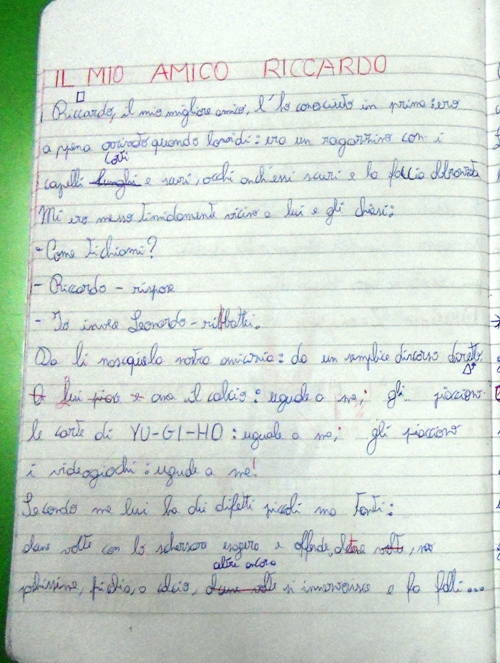 IL MIO AMICO RICCARDO
Riccardo, il mio migliore amico, l'ho conosciuto in prima: ero
a ppena arrivato quando lo vidi: era un ragazzino con i
corti
capelli lunghi e scuri, occhi anch'essi scuri e la faccia abbronzata
Mi ero messo timidamente vicino a lui e gli chiesi:
- Come ti chiami?
- Riccardo - rispose
- Io invece Leonardo - ribbattei.
Da lì nacque la nostra amicizia: da un semplice discorso diretto
lui piace il calcio: uguale a me; gli piacciono
le carte di YU-GI-HO: uguale a me; gli piacciono
i videogiochi: uguale a me!
Secondo me lui ha dei difetti piccoli ma tanti:
alcune volte con lo scherzare esagera e offende,
altre ancora
a calcio, alcune volte si innervosisce e fa falli...